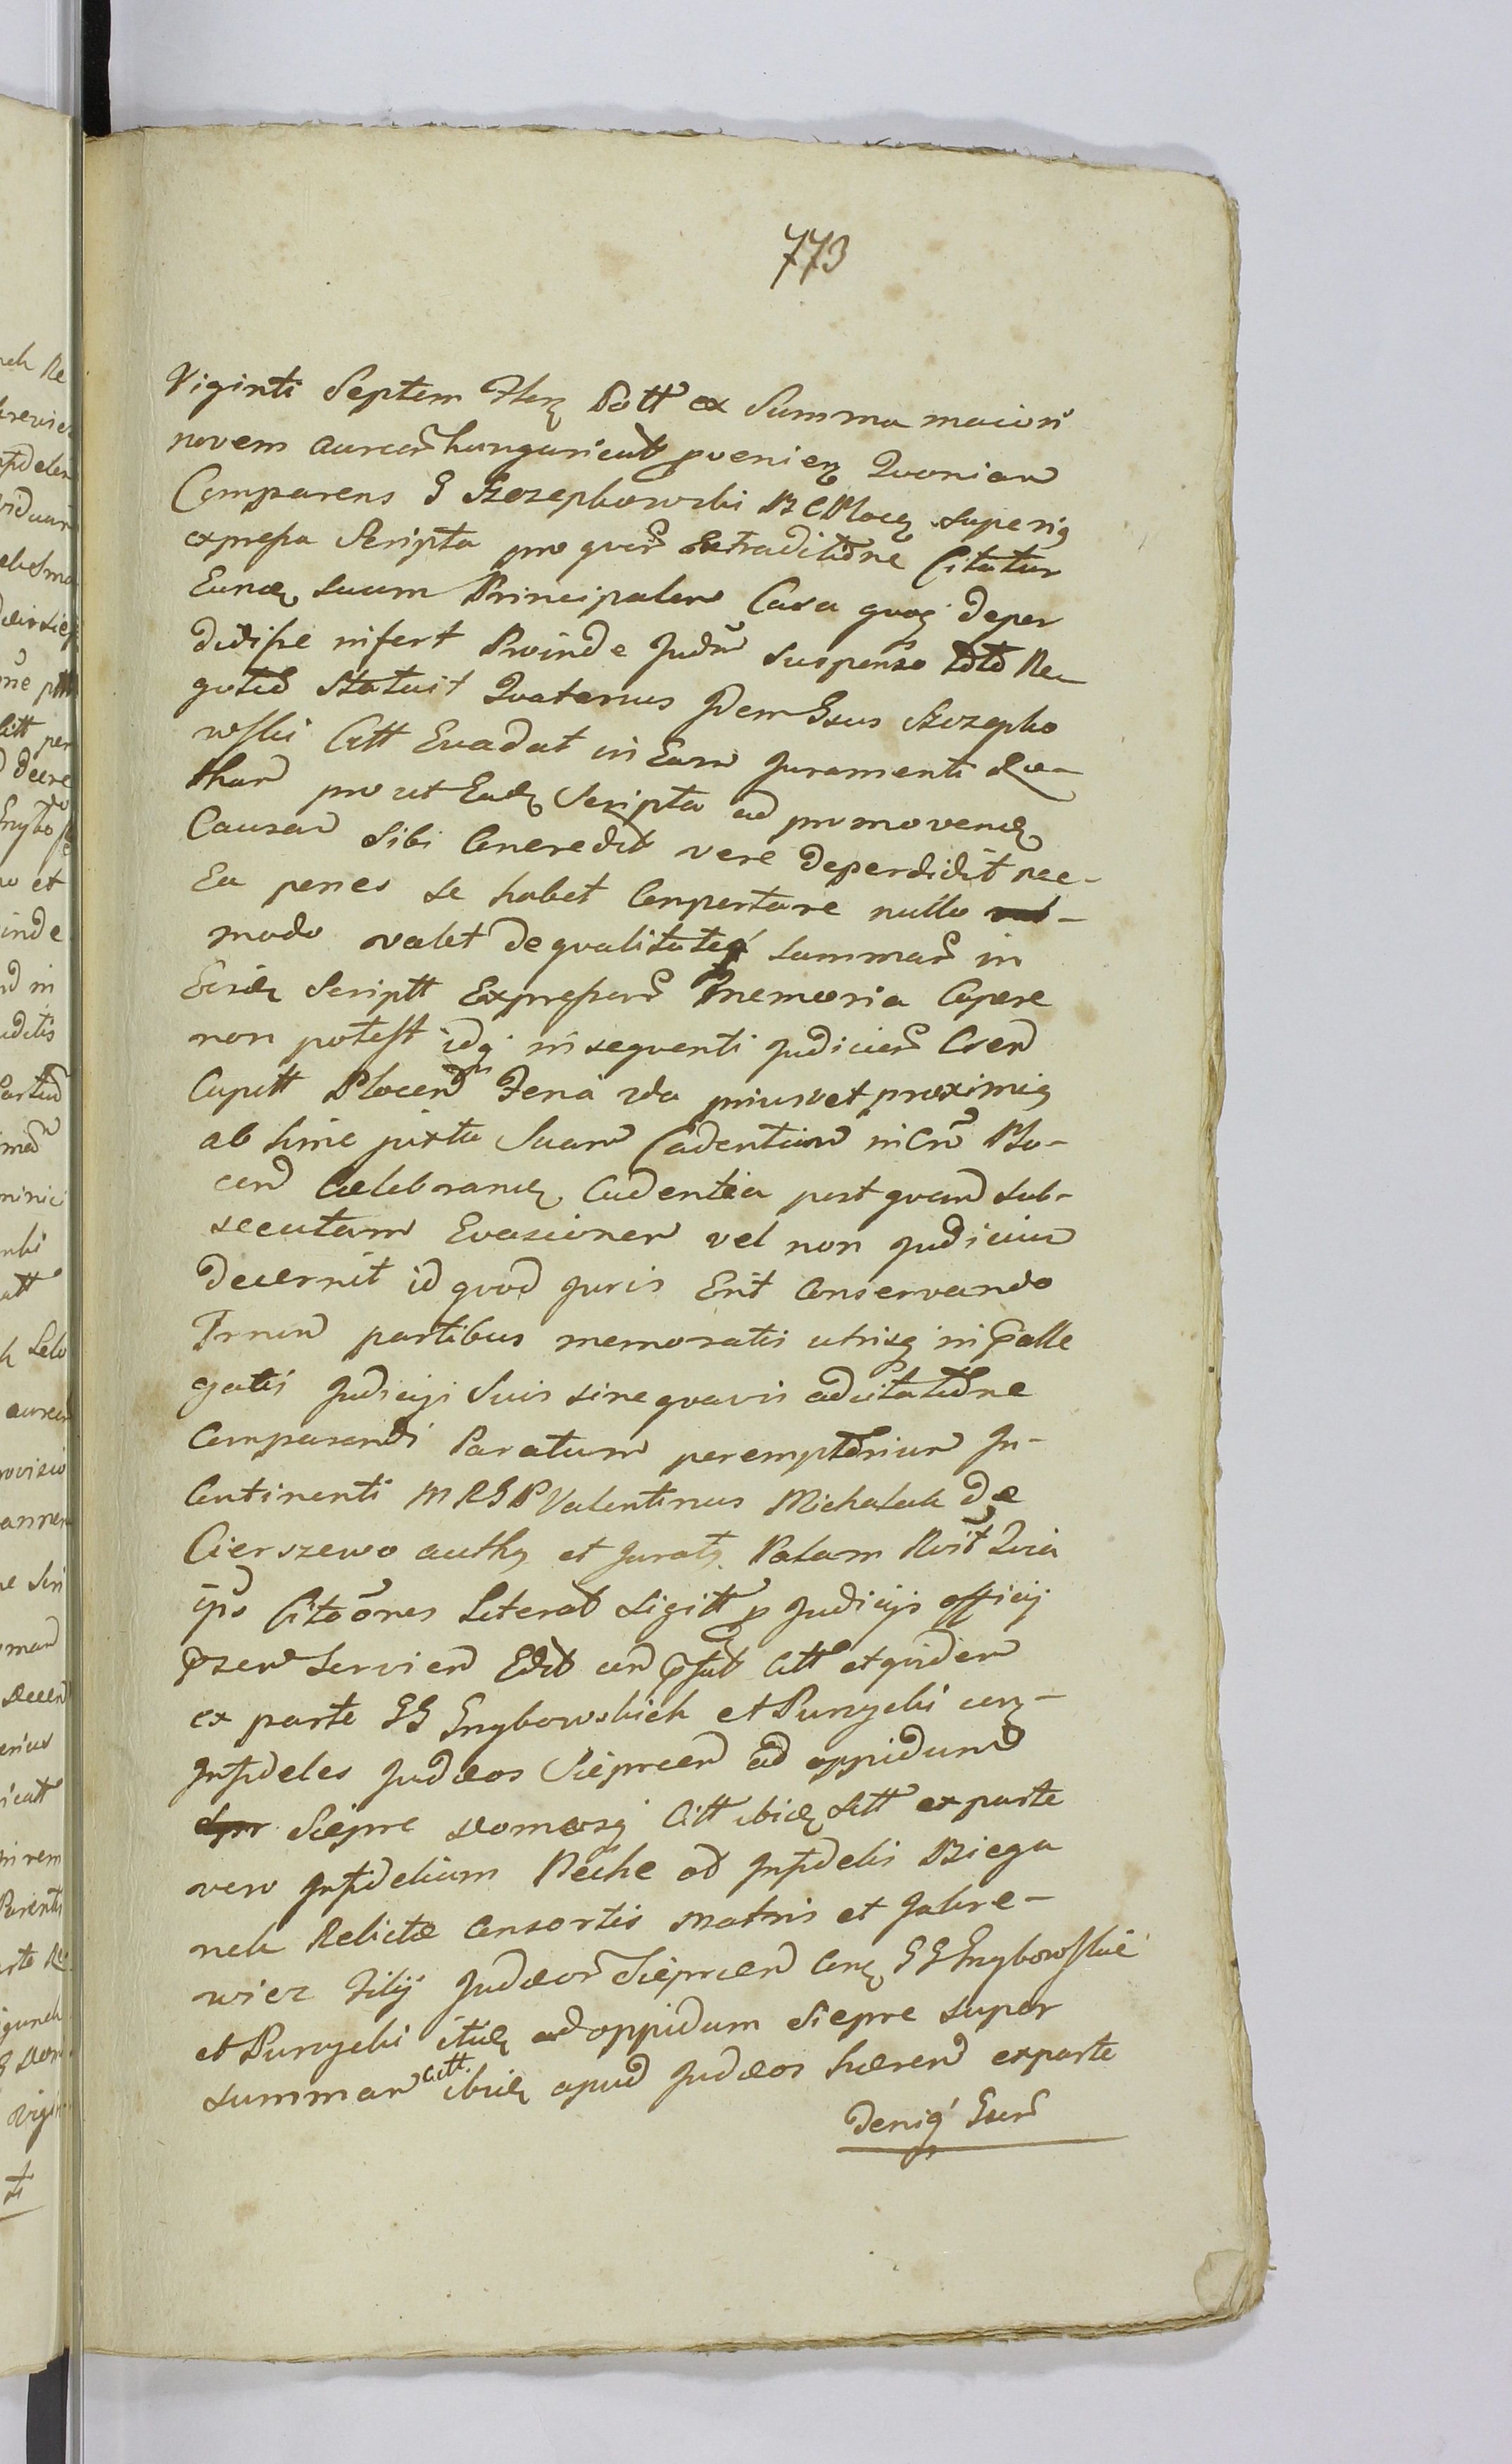 773
Viginti Septem flor Poll ex Summa maiori
novem aureor hungarical proveniens Quoniam
Comparens G Szczepkowski B C Plocen superius
expressa Scripta pro quor Extraditione Citatur
Eundem suum Principalem Casu quoq deper
didisse infert Proinde Judm suspenso toto Ne
gotio Statuit Quatenus Idem Gsus Szczepko
wski Citt Evadat in Eam Juramenti Ro
tham prout Eadem Scripta ad promovend
Causam Sibi Concredit vere deperdidit nec
Ea penes se habet Comportare nullo
modo valet de qualitateq summar in
Eisdem Scriptt Expressar memoria Capere
non potest idq in sequenti Judicior Cren
Capitt Plocen feria 2da prius vel proximis
ab hinc juxta Suam Cadentiam in Cro Plo-
cen Celebrand Cadentia post quam sub-
secutam Evasionem vel non Judicium
decernit id quod Juris Erit Conservando
Trnum partibus memoratis utrisq in Palle
gatis Judicys Suis sine quavis adcitatione
Comparendi Paratum peremptorium In-
Continenti M R G P Valentinus Michalak de
Cierszewo auths et Jurats Palam Rvit Quia
ips Citaones Literal Sigitt p Judicys officij
Pzen Servien Edit cen Psut Citt et quidem
ex parte GG Gnybowskich et Purzycki con
Infideles Judæos Sieprcen ad oppidum
Sieprc domosq Citt ibid sitt ex parte
vero Infidelium Reche ad Infidelis Biega
nek Relictæ Consortis Matris et Jakre-
wicz Filij Judæor Sieprcen Con GG Gnybowskie
et Purzycki itid ad oppidum Sieprc super
summam citt. ibid apud Judæos hæren ex parte
deniq Gser